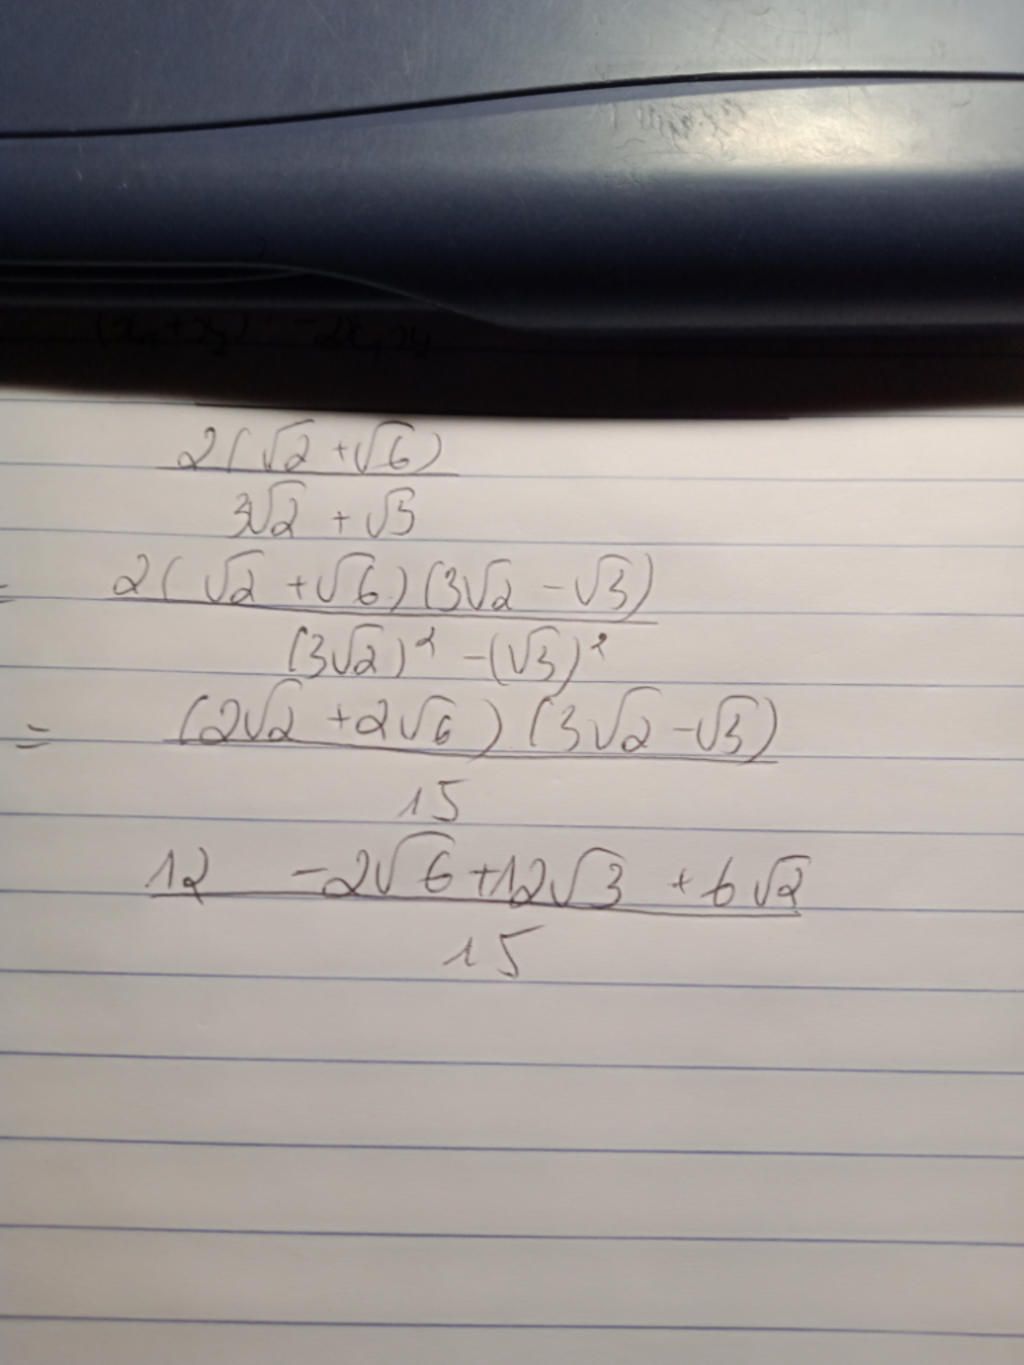 (x₁+x₂) -2x₁x₂
2(√2 +√6)
3√2 + √3
= 2(√2 +√6)(3√2 -√3)
(3√2)² -(√3)²
= (2√2 +2√6)(3√2 -√3)
15
12 -2√6 +12√3 +6√2
15